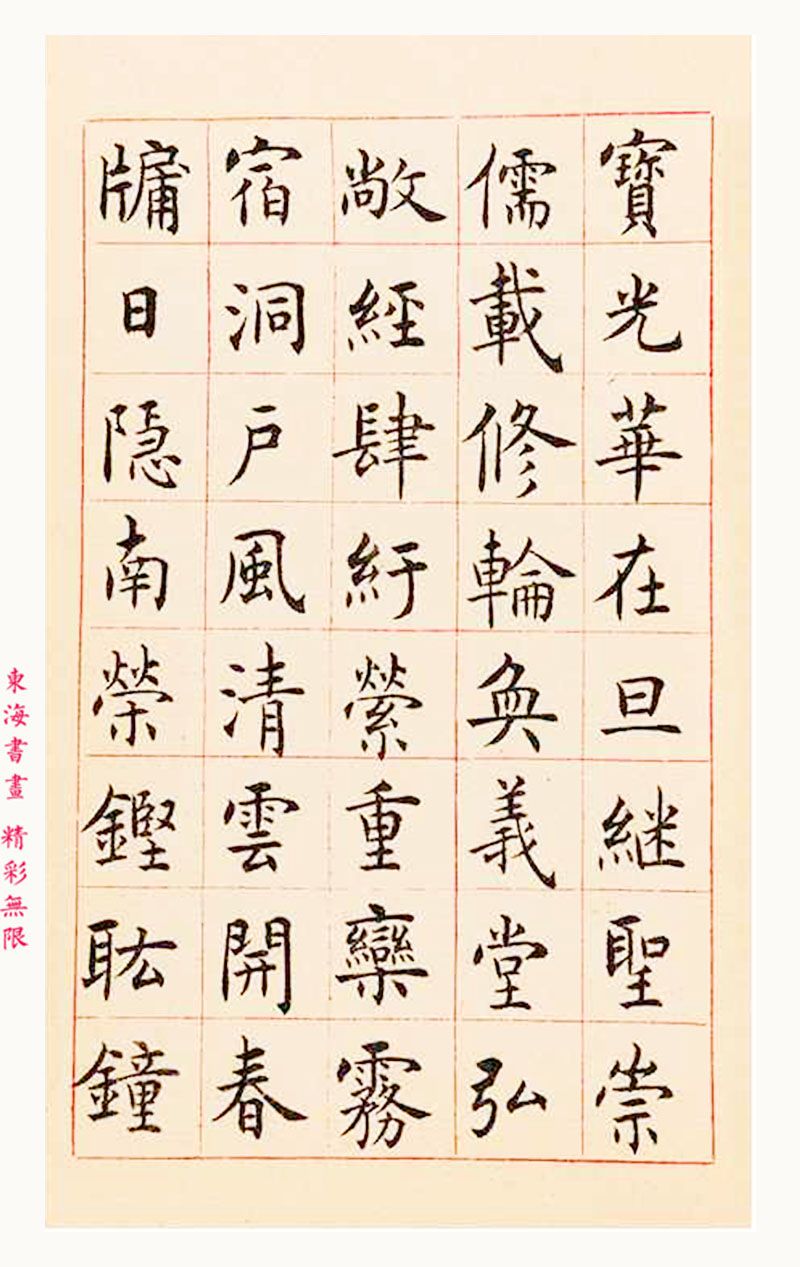 寶光華在旦継聖崇
儒載修輪奐義堂弘
敞經肆紆縈重欒霧
宿洞戶風清雲開春
牗日隱南榮鏗耾鐘
東海書畫 精彩無限